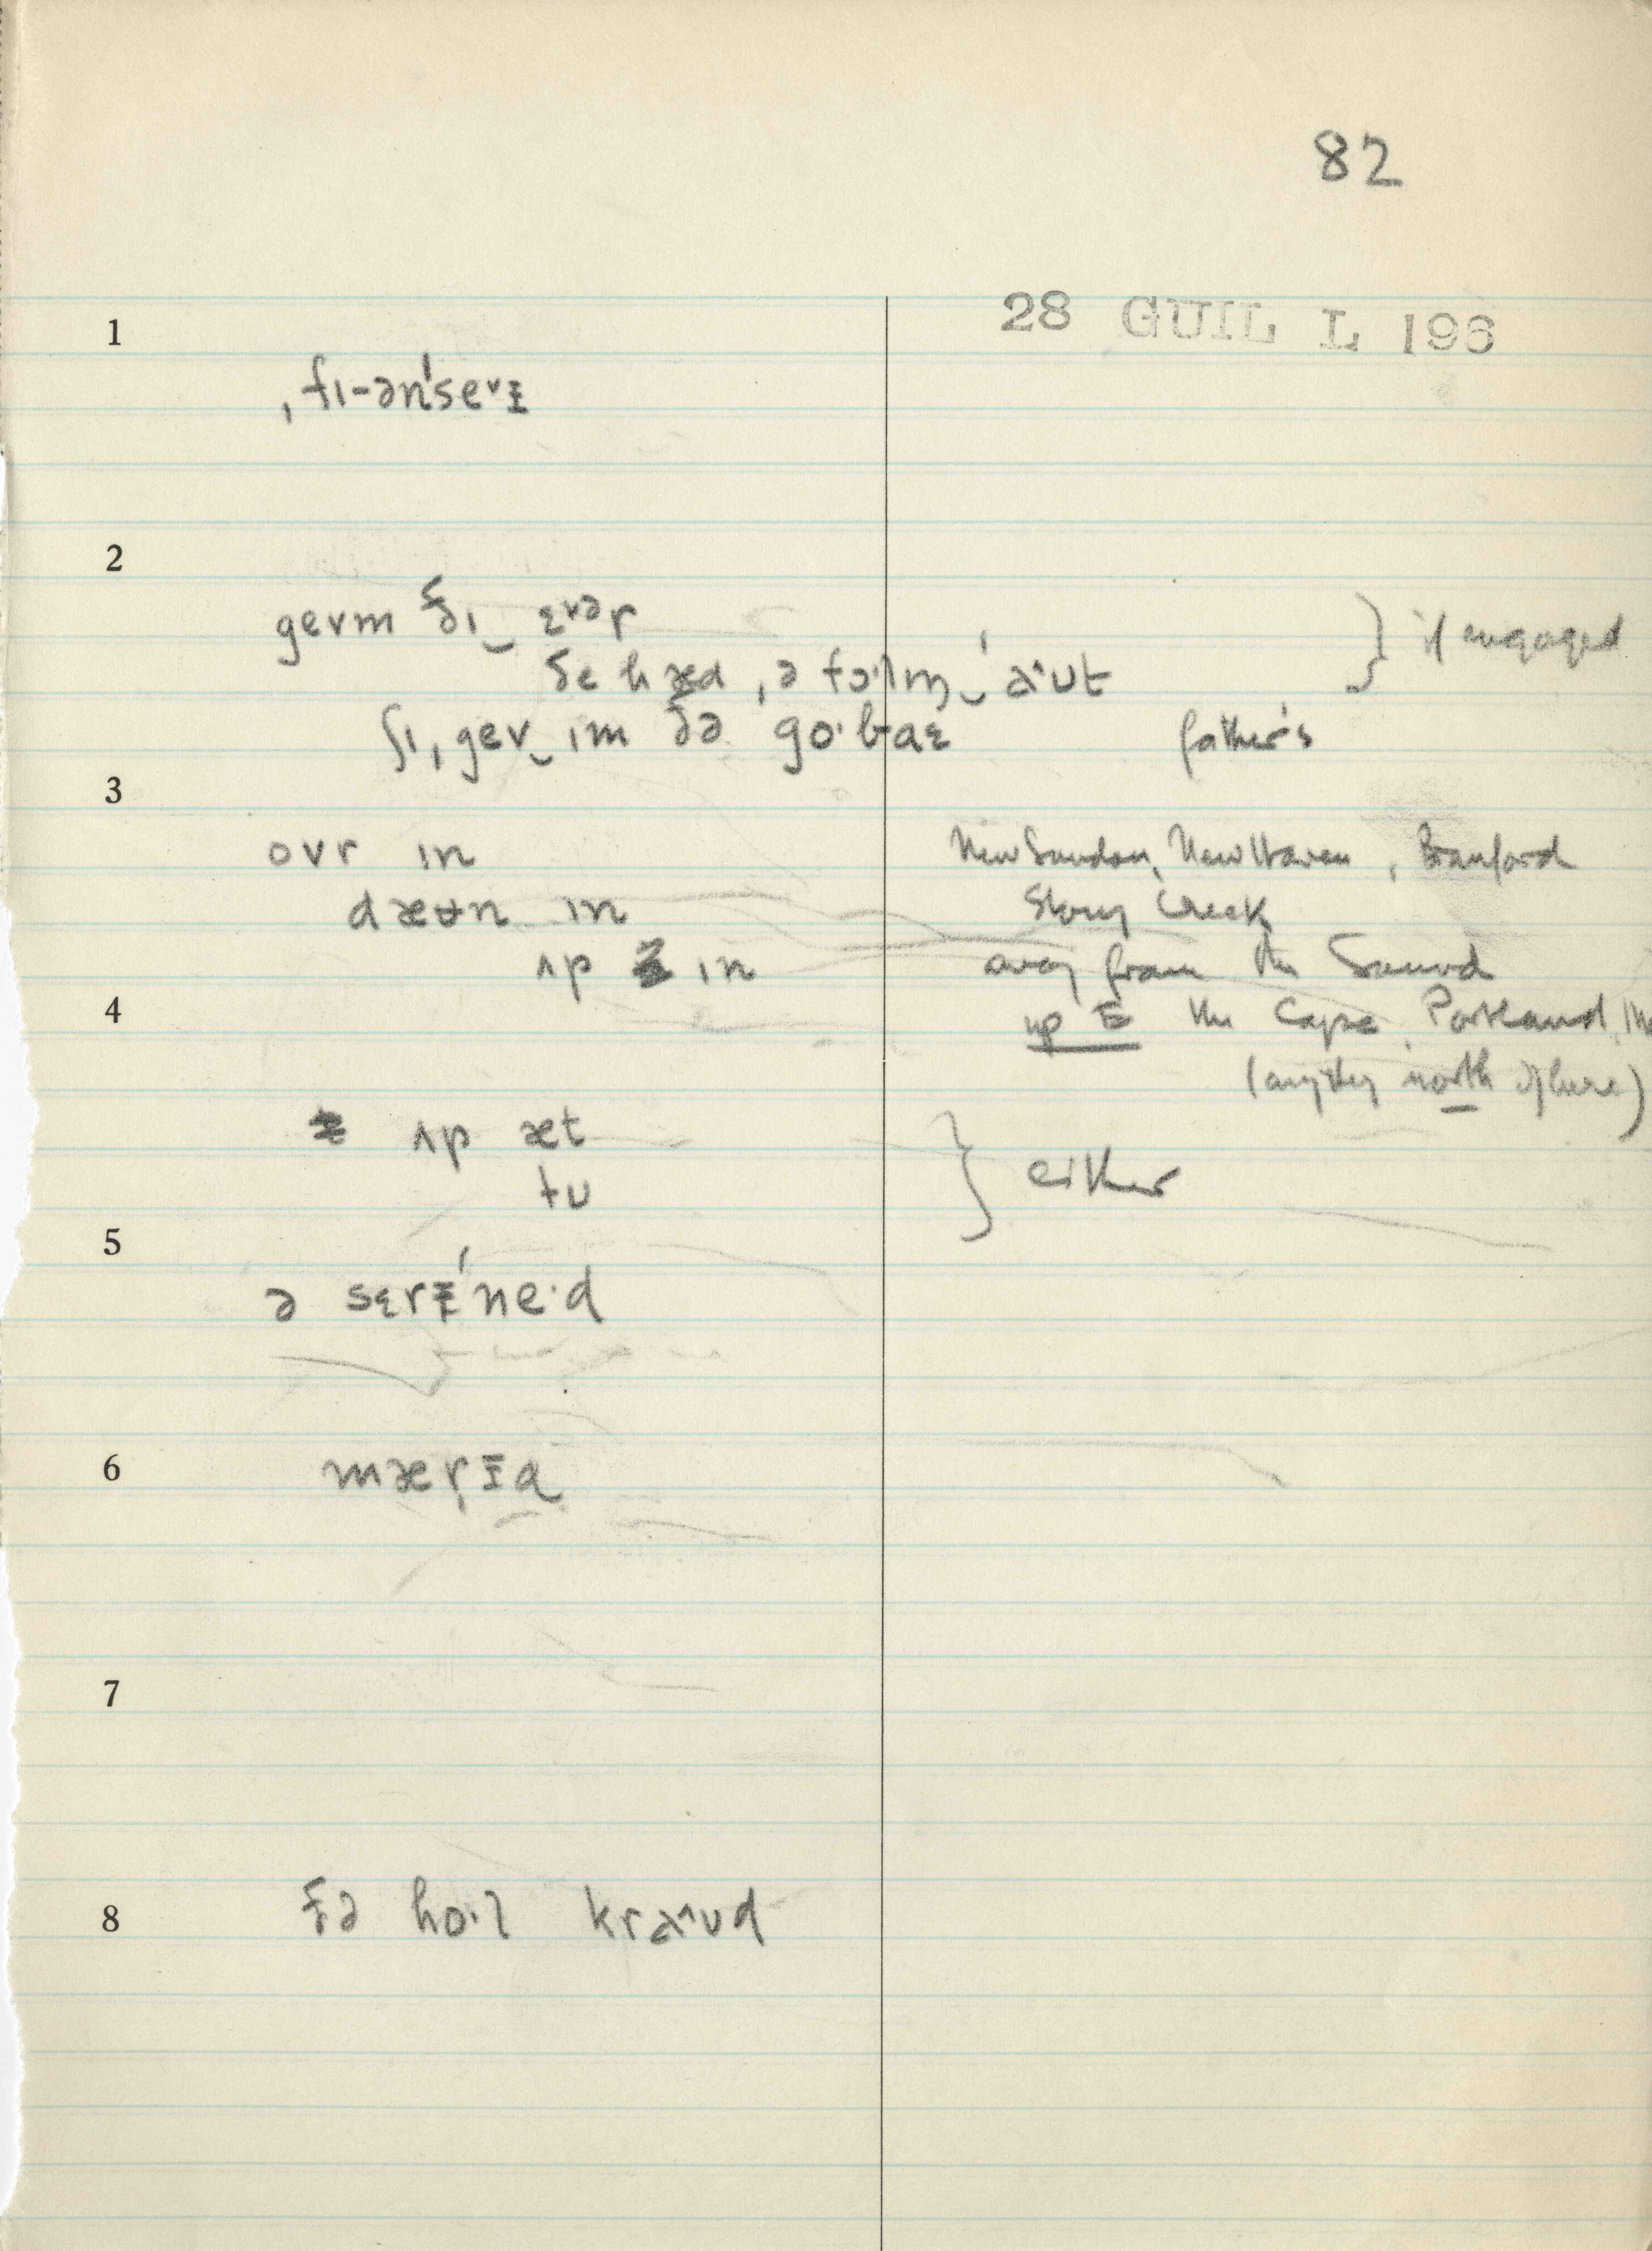 82
28 GUIL L 196
1
ˌfɪ-ənˈseᵛɪ
2
gevm ðɪ‿ ɛᵛər } if engaged
ðe hæd ˌə fɔ·lɪŋ‿ ˈaˆʊt
ʃɪˌgev‿ɪm ðə go·baɛ father's
3
ovr ɪn New London, New Haven, Branford
dæʉn ɪn Stony Creek
ʌp ɪn away from the Sound
4
up E the Cape, Portland, Me
(anything north of here)
ʌp æt } either
tu
5
ə sɛrɪˈne·d
6
mærɪɑ
7
8
ðə ho·l kraˆʊd